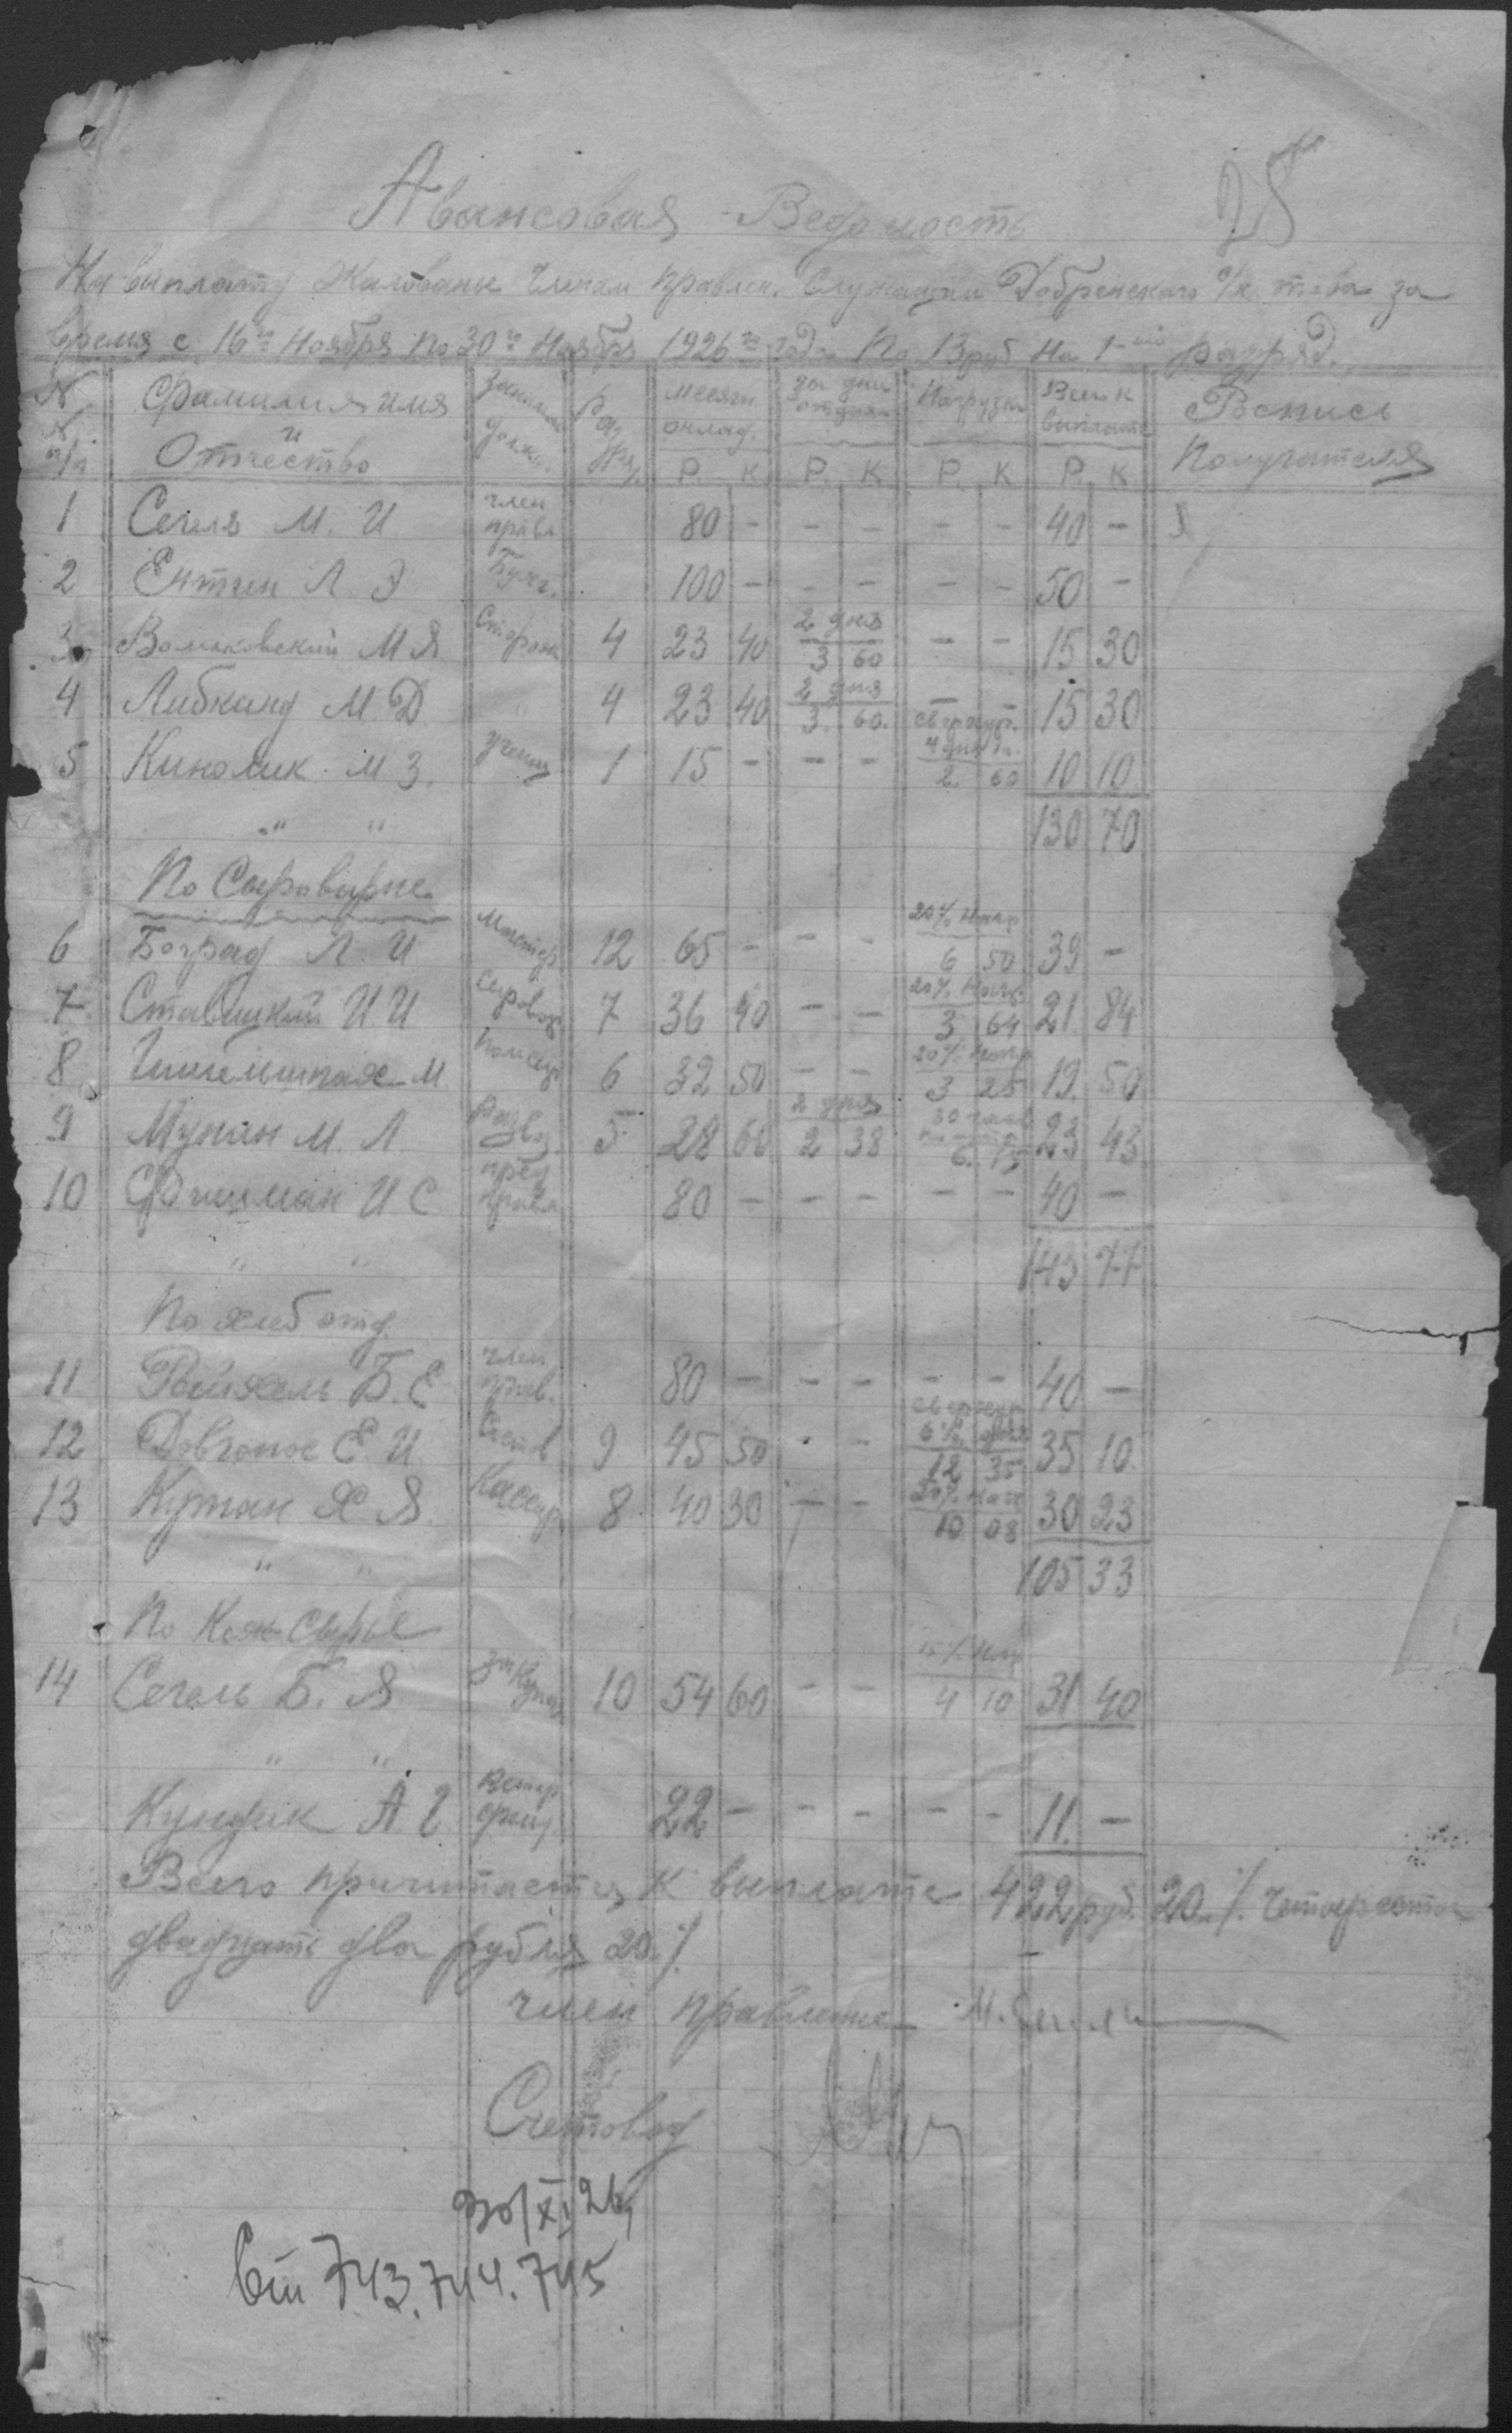 28
Авансовая Ведомость
На выплату Жалованье Членам правлен. Служащим Добренского с/х т-ва за
время с 16го Ноября по 30го Ноября 1926го года По 13 руб на 1-ый разряд.
№ № п/п Фамилия имя и Отчество Занима должн. Разряд. месячн оклад. за дни отдыха Нагрузка Всего к выплате Роспись Получателя
Р. К. Р. К Р. К Р. К
1 Сегель М. И. член правл 80 - - - - - 40 -
2 Ентин Л З Бухг. 100 - - - - - 50 -
3 Вольковский М Я Сторож 4 23 40 2 дня 3 60 - - 15 30
4 Либканд М. Д. " 4 23 40 2 дня 3. 60. - 15 30
5 Киколик М З. учениц 1 15 - - - сверхур. 4 дня 2. 60 10 10
130 70
" "
По Сыроварне
6 Боград Л. И Мастер 12 65 - - - 20% Нагр 6 50 39 -
7 Ставицкий И И Сыровар 7 36 40 - - 20% Нагр 3 64 21 84
8 М Пом сыр 6 32 50 - - 20% Нагр 3 25 19. 50
9 Мукан М. Л Развоз 5 28 60 2 дня 2 38 30 часов 6. 75 23 43
10 Фтихман И С пред правл 80 - - - - - 40 -
143 77
" "
По хлеб отд.
11 Райхель Б. Е член прав. 80 - - - - - 40 -
12 Довгонос Е. И Счетов 9 45 50 - - сверхур 6½ дня 12 35 35 10.
13 Куман Х Я. Кассир 8 40 30 - - 50% Нагр 10 08 30 23
105 33
" "
По Кож Сырье
14 Сегель Б. Я закупщ 10 54 60 - - 15% Нагр 4 10 31 40
" "
Кундик А Г Ветер фельд 22 - - - - - 11. -
Всего причитается к выплате 422 руб. 20 к/. Четыреста
двадцать два рубля 20 к/.
член правления М. Сегель
Счетовод
30/XI 26
Ст 743. 744. 745